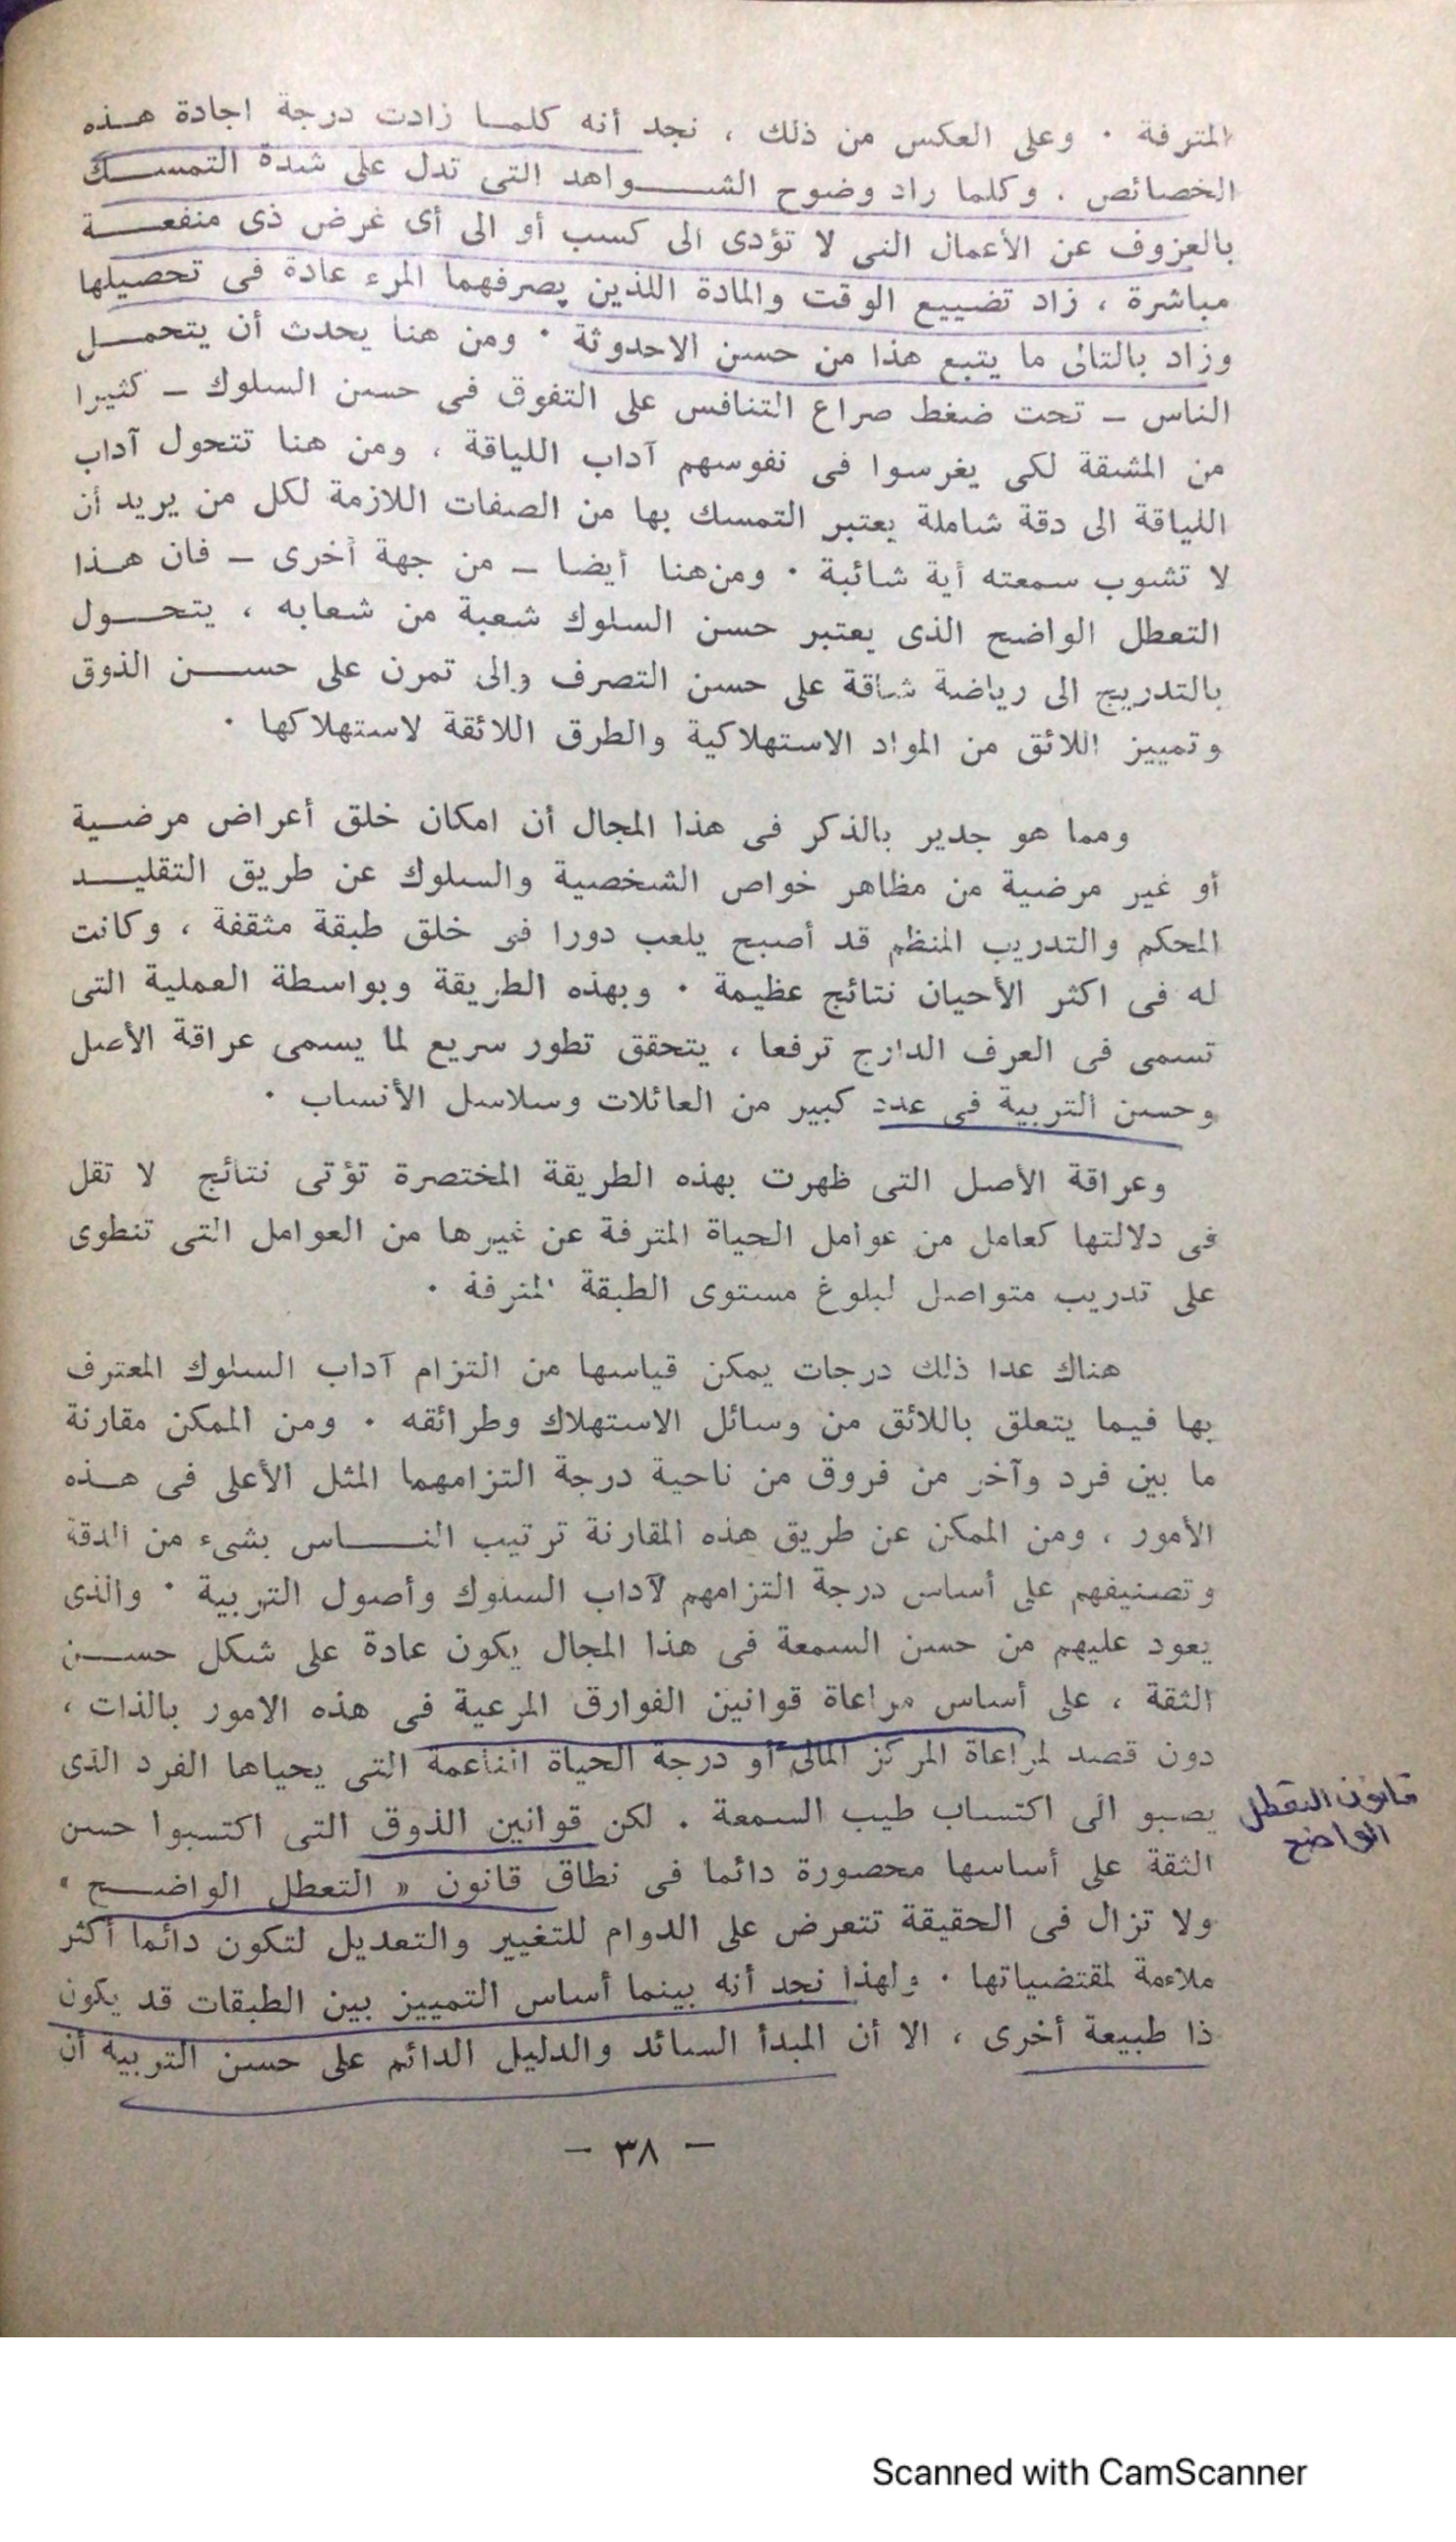 المترفة ٠ وعلى العكس من ذلك ، نجد أنه كلمـا زادت درجة اجادة هـذه
الخصائص . وكلما راد وضوح الشـــواهد التى تدل على شدة التمسـك
بالعزوف عن الأعمال التى لا تؤدى الى كسب أو الى أى غرض ذى منفعـة
مباشرة ، زاد تضييع الوقت والمادة اللذين يصرفهما المرء عادة فى تحصيلها
وزاد بالتالى ما يتبع هذا من حسن الاحدوثة ٠ ومن هنا يحدث أن يتحمـل
الناس – تحت ضغط صراع التنافس على التفوق فى حسن السلوك – كثيرا
من المشقة لكى يغرسوا فى نفوسهم آداب اللياقة ، ومن هنا تتحول آداب
اللياقة الى دقة شاملة يعتبر التمسك بها من الصفات اللازمة لكل من يريد أن
لا تشوب سمعته أية شائبة ٠ ومن هنا أيضا – من جهة أخرى – فان هـذا
التعطل الواضح الذى يعتبر حسن السلوك شعبة من شعابه ، يتحـول
بالتدريج الى رياضة شاقة على حسن التصرف والى تمرن على حســن الذوق
وتمييز اللائق من المواد الاستهلاكية والطرق اللائقة لاستهلاكها ٠
ومما هو جدير بالذكر فى هذا المجال أن امكان خلق أعراض مرضـية
أو غير مرضية من مظاهر خواص الشخصية والسلوك عن طريق التقليـد
المحكم والتدريب المنظم قد أصبح يلعب دورا فى خلق طبقة مثقفة ، وكانت
له فى اكثر الأحيان نتائج عظيمة ٠ وبهذه الطريقة وبواسطة العملية التى
تسمى فى العرف الدارج ترفعا ، يتحقق تطور سريع لما يسمى عراقة الأصل
وحسن التربية فى عدد كبير من العائلات وسلاسل الأنساب ٠
وعراقة الأصل التى ظهرت بهذه الطريقة المختصرة تؤتى نتائج لا تقل
فى دلالتها كعامل من عوامل الحياة المترفة عن غيرها من العوامل التى تنطوى
على تدريب متواصل لبلوغ مستوى الطبقة المترفة ٠
هناك عدا ذلك درجات يمكن قياسها من التزام آداب السلوك المعترف
بها فيما يتعلق باللائق من وسائل الاستهلاك وطرائقه ٠ ومن الممكن مقارنة
ما بين فرد وآخر من فروق من ناحية درجة التزامهما المثل الأعلى فى هـذه
الأمور ، ومن الممكن عن طريق هذه المقارنة ترتيب النـــاس بشىء من الدقة
وتصنيفهم على أساس درجة التزامهم لآداب السلوك وأصول التربية ٠ والذى
يعود عليهم من حسن السمعة فى هذا المجال يكون عادة على شكل حســن
الثقة ، على أساس مراعاة قوانين الفوارق المرعية فى هذه الامور بالذات ،
دون قصد لمراعاة المركز المالى أو درجة الحياة الناعمة التى يحياها الفرد الذى
يصبو الى اكتساب طيب السمعة . لكن قوانين الذوق التى اكتسبوا حسن
الثقة على أساسها محصورة دائما فى نطاق قانون « التعطل الواضـح »
ولا تزال فى الحقيقة تتعرض على الدوام للتغيير والتعديل لتكون دائما أكثر
ملاءمة لمقتضياتها ٠ ولهذا نجد أنه بينما أساس التمييز بين الطبقات قد يكون
ذا طبيعة أخرى ، الا أن المبدأ السائد والدليل الدائم على حسن التربية أن
قانون التعطل
الواضح
– ٣٨ –
Scanned with CamScanner